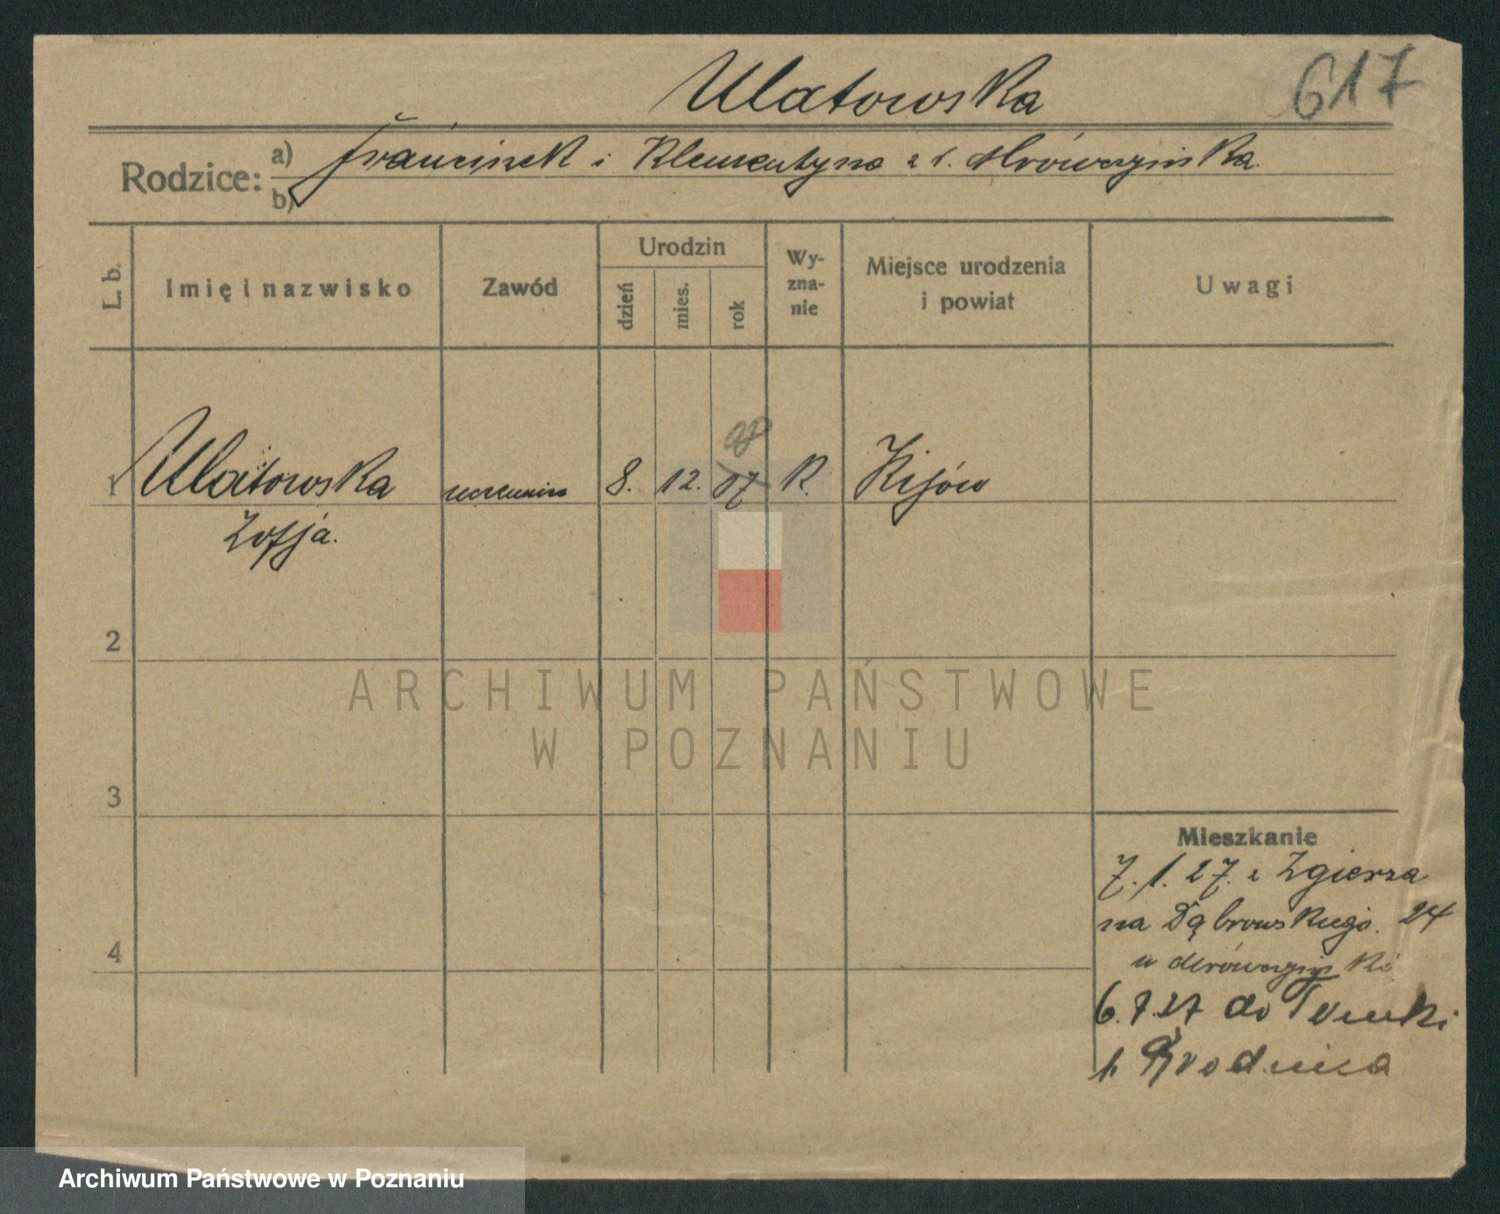 Ulatowska
617
Rodzice: a) Franciszek i Klementyna z d. Mrówczyńska.
b)
L. b.
Imię i nazwisko
Zawód
Urodzin
dzień
mies.
rok
Wy-
zna-
nie
Miejsce urodzenia
i powiat
Uwagi
08
1 Ulatowska uczennica 8. 12. 07 R. Kijów
Zofja.
2
ARCHIWUM PAŃSTWOWE
W POZNANIU
3
Mieszkanie
7. 1. 27. z Zgierza
na Dąbrowskiego. 24
4
6.7.27 do
p. Brodnica
Archiwum Państwowe w Poznaniu